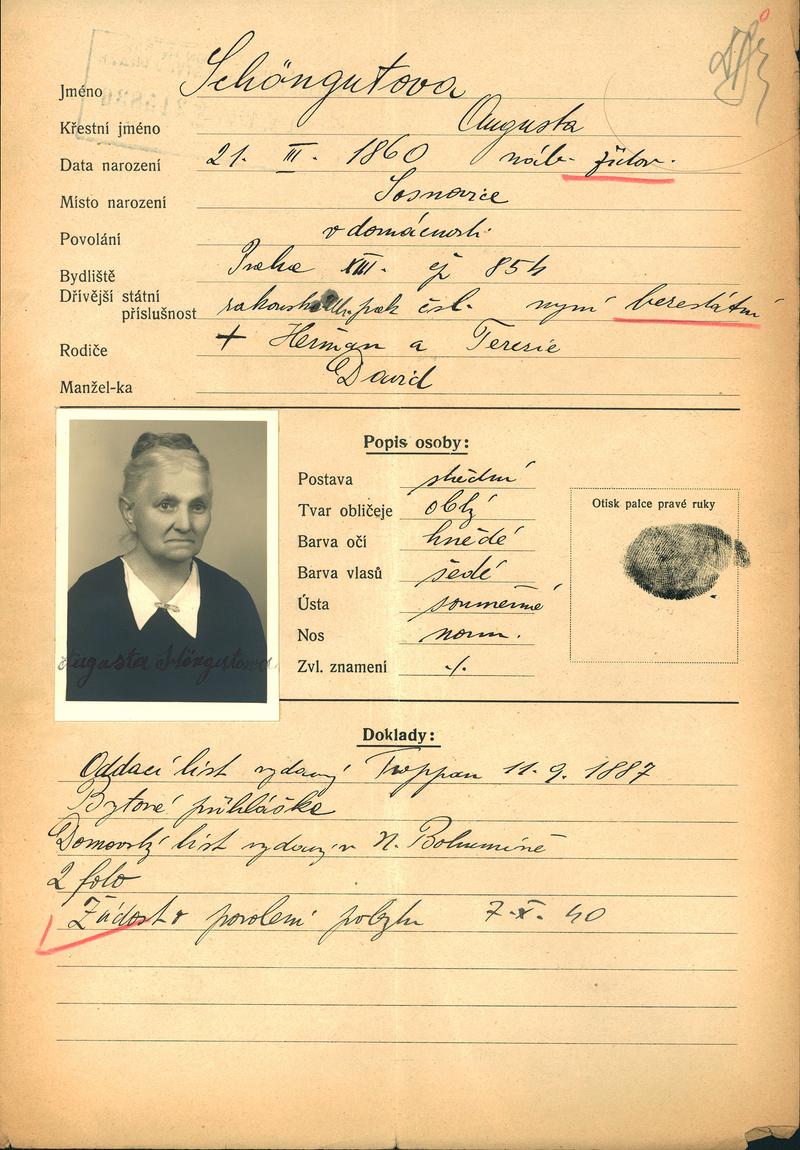 Jméno Schöngutova
Křestní jméno Augusta
Data narození 21. III. 1860 náb. židov.
Místo narození Sosnovice
Povolání v domácnosti
Bydliště Praha XIII. čp 854
Dřívější státní
příslušnost rakouská pak čsl. nyní bezestátní
Rodiče + Heřman a Terezie
Manžel-ka David
Popis osoby:
Postava střední
Tvar obličeje oblý
Barva očí hnědé
Barva vlasů šedé
Ústa souměrné
Nos norm.
Zvl. znamení ./.
Otisk palce pravé ruky
Augusta Schöngutova
Doklady:
Oddací list vydaný Troppau 11. 9. 1887
Bytové přihláške
Domovský list vydaný v N. Bohumíně
2 foto
Žádost o povolení pobytu 7.X. 40